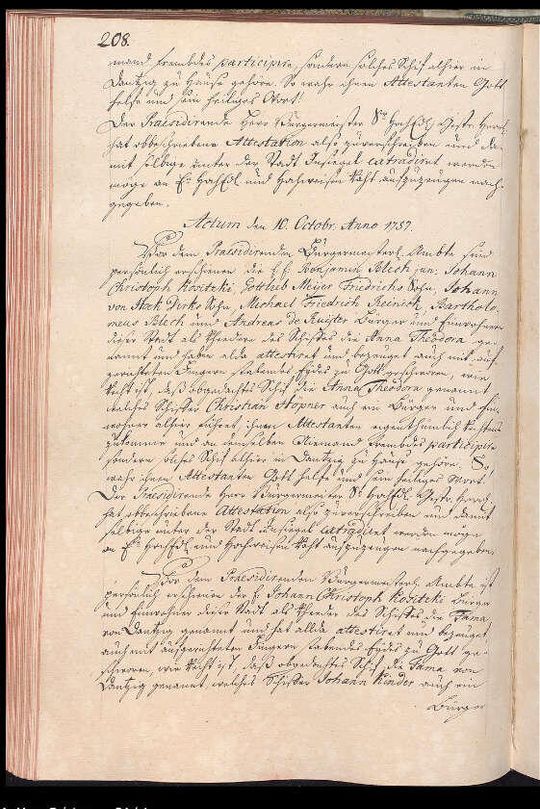 208.
mand frembdes participire, sondern solches Schif alhier in
Dantzig zu Hause gehöre. So wahr ihnen Attestanten Gott
helfe und sein heiliges Wort!
Der Praesidirende Herr Bürgermeister Sr. HochEdl. Gestr. Herrl.
hat obbeschriebene Attestation also zuverschreiben und da-
mit selbige unter der Stadt Insiegel extradiret werden
möge an E. HochEdl. und Hochweisen Raht auszuzeugen nach-
gegeben.
Actum den 10. Octobr. Anno 1757.
Vor dem Praesidirenden Bürgermeisterl. Ambte sind
persönlich erschienen die E. E. Benjamin Blech jun. Johann
Christoph Rositzki, Gottlieb Meyer Friedrichs Sohn, Johann
von Hoek Dirks Sohn, Michael Friedrich Reinick, Bartholo-
meus Blech und Andreas de Ruyter Bürger und Einwohnere
dieser Stadt als Rheedere des Schiffes die Anna Theodora ge-
nannt und haben alda attestiret und bezeuget auch mit auf-
gerekten Fingern stabendes Eydes zu Gott geschworen, wie
Raht ist, daß obgedachtes Schif die Anna Theodora genannt
welches Schiffer Christian Höpner auch ein Bürger und Ein-
wohner alhier führet, ihnen Attestanten eigenthumlich
zukomme und an demselben Niemand frembdes participire
sondern solches Schif alhier in Dantzig zu Hause gehöre. So
wahr ihnen Attestanten Gott helfe und sein heiliges Wort!
Der Praesidirende Herr Bürgermeister Sr. HochEdl. Gestr. Herrl.
hat obbeschriebene Attestation also zuverschreiben und damit
selbige unter der Stadt Insiegel extradiret werden möge
an E. HochEdl. und Hochweisen Raht auszuzeugen nachgegeben.
Vor dem Praesidirenden Bürgermeisterl. Ambte ist
persönlich erschienen der E. Johann Christoph Rositzki Bürger
und Einwohner dieser Stadt als Rheeder des Schiffes die Fama
von Dantzig genannt und hat allda attestiret und bezeuget
auch mit ausgerekten Fingern stabendes Eydes zu Gott ge-
schworen, wie Raht ist, daß obgedachtes Schif die Fama von
Dantzig genannt, welches Schiffer Johann Kinder auch ein
Bürger